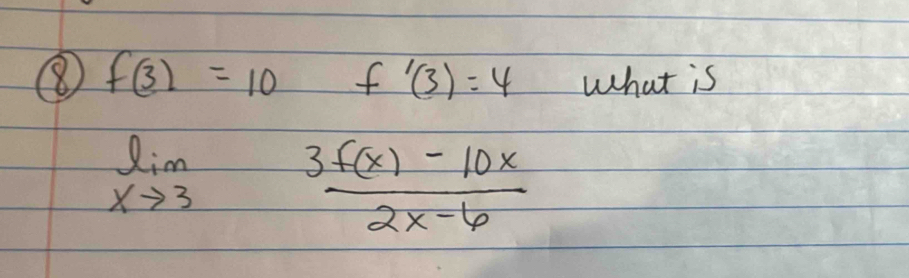 ⑧ f(3) = 10 f'(3) = 4 what is
lim x→3 (3f(x) - 10x)/(2x-6)